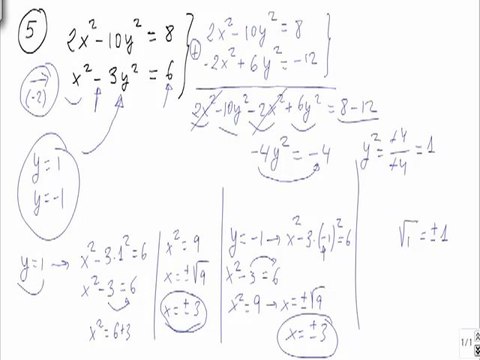 5
2x²-10y²=8
x²-3y²=6
(-2)
+
2x²-10y²=8
-2x²+6y²=-12
2x²-10y²-2x²+6y²=8-12
-4y²=-4
y²=+4/+4=1
√1=±1
y=1
y=-1
y=1→x²-3·1²=6
x²-3=6
x²=6+3
x²=9
x=±√9
x=±3
y=-1→x²-3·(-1)²=6
x²-3=6
x²=9→x=±√9
x=±3
1/1